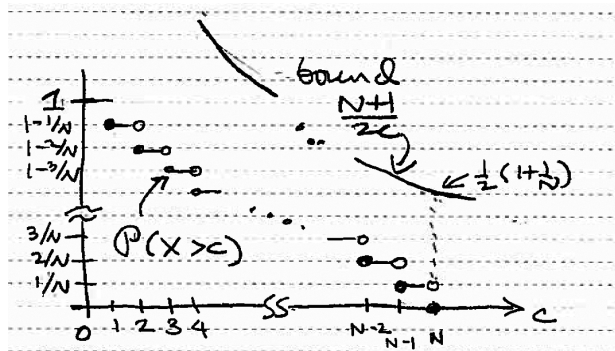 bound
N+1
2c
1
1-1/N
1-2/N
1-3/N
1/2 (1+1/N)
P(X>c)
3/N
2/N
1/N
0 1 2 3 4 N-2 N-1 N c